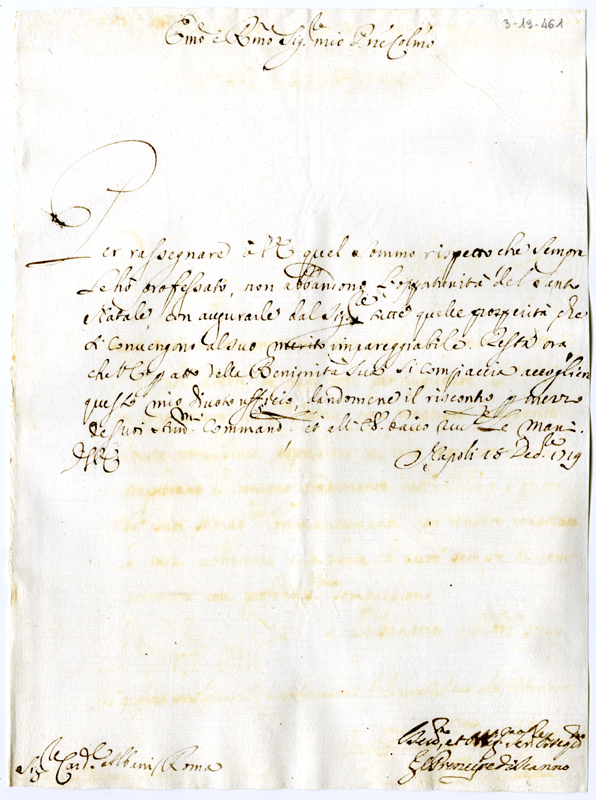 3-19-461
Emo è Rmo Sigre mio Pne Colmo
Per rassegnare à V.E. quel sommo rispetto che sempre
Le hò professato, non abbandono l'opportunità del Santo
Natale, con augurarle dal Sigre tutte quelle prosperità che
si convengono al suo merito impareggiabile. Resta ora
che per atto della Benignità Sua si compiaccia accogliere
questo mio divoto uffizio, dandomene il riscontro p mezzo
de suoi stimmi Command. ed all'E.V. bacio le Mani
Di V.E. Napoli 18 Dec.bre 1719
Sigre Card.le Albani Roma
Il Principe di